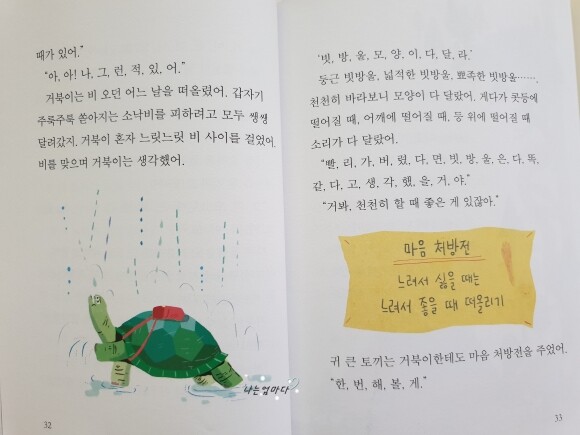 때가 있어."
"아, 아! 나, 그, 런, 적, 있, 어."
거북이는 비 오던 어느 날을 떠올렸어. 갑자기
주룩주룩 쏟아지는 소낙비를 피하려고 모두 쌩쌩
달려갔지. 거북이 혼자 느릿느릿 비 사이를 걸었어.
비를 맞으며 거북이는 생각했어.
나는엄마다
32
'빗, 방, 울, 모, 양, 이, 다, 달, 라.'
둥근 빗방울, 넓적한 빗방울, 뾰족한 빗방울…….
천천히 바라보니 모양이 다 달랐어. 게다가 콧등에
떨어질 때, 어깨에 떨어질 때, 등 위에 떨어질 때
소리가 다 달랐어.
"빨, 리, 가, 버, 렸, 다, 면, 빗, 방, 울, 은, 다, 똑,
같, 다, 고, 생, 각, 했, 을, 거, 야."
"거봐, 천천히 할 때 좋은 게 있잖아."
마음 처방전
느려서 싫을 때는
느려서 좋을 때 떠올리기
귀 큰 토끼는 거북이한테도 마음 처방전을 주었어.
"한, 번, 해, 볼, 게."
33